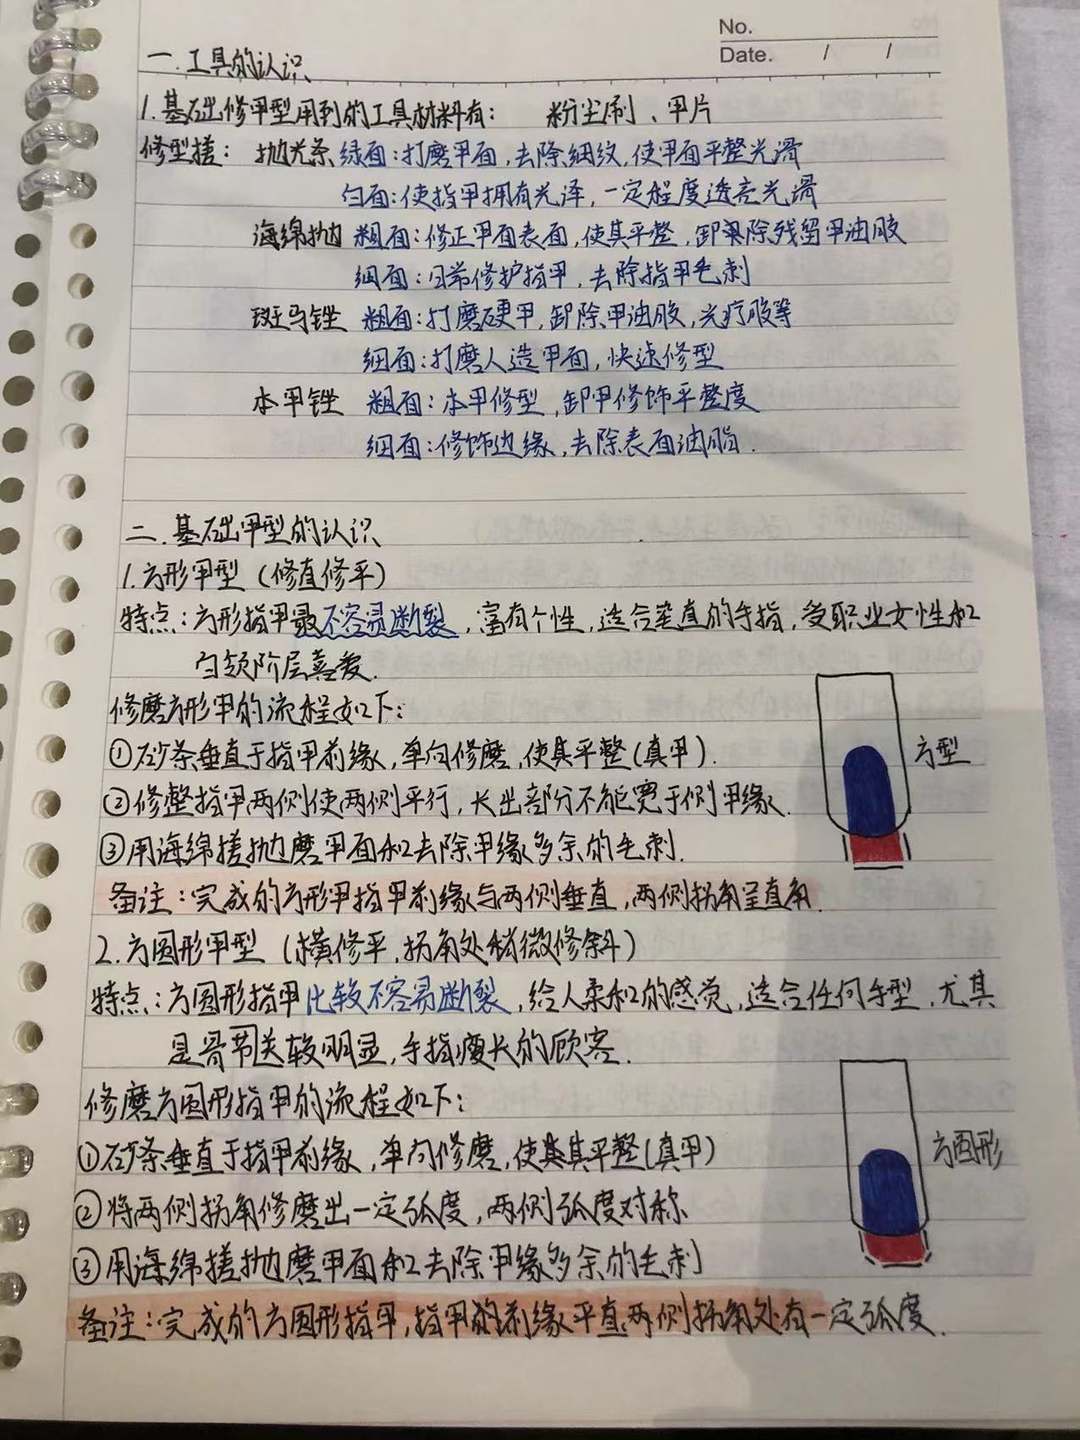 No.
Date. / /
一.工具的认识
1.基础修甲型用到的工具材料有: 粉尘刷、甲片
修型搓: 抛光条 绿面:打磨甲面,去除细纹,使甲面平整光滑
白面:使指甲拥有光泽,一定程度透亮光滑
海绵抛 粗面:修正甲面表面,使其平整,卸除残留甲油胶
细面:日常修护指甲,去除指甲毛刺
斑马锉 粗面:打磨硬甲,卸除甲油胶,光疗胶等
细面:打磨人造甲面,快速修型
本甲锉 粗面:本甲修型,卸甲修饰平整度
细面:修饰边缘,去除表面油脂.
二.基础甲型的认识
1.方形甲型(修直修平)
特点:方形指甲最不容易断裂,富有个性,适合垂直的手指,受职业女性和
白领阶层喜爱.
修磨方形甲的流程如下:
①砂条垂直于指甲前缘,单向修磨,使其平整(真甲).
方型
②修整指甲两侧使两侧平行,长出部分不能宽于侧甲缘.
③用海绵搓抛磨甲面和去除甲缘多余的毛刺.
备注:完成的方形甲指甲前缘与两侧垂直,两侧拐角呈直角.
2.方圆形甲型(横修平,拐角处稍微修斜)
特点:方圆形指甲比较不容易断裂,给人柔和的感觉,适合任何手型,尤其
是骨节关较明显,手指瘦长的顾客.
修磨方圆形指甲的流程如下:
①砂条垂直于指甲前缘,单向修磨,使其平整(真甲)
方圆形
②将两侧拐角修磨出一定弧度,两侧弧度对称
③用海绵搓抛磨甲面和去除甲缘多余的毛刺
备注:完成的方圆形指甲,指甲的前缘平直,两侧拐角处有一定弧度.